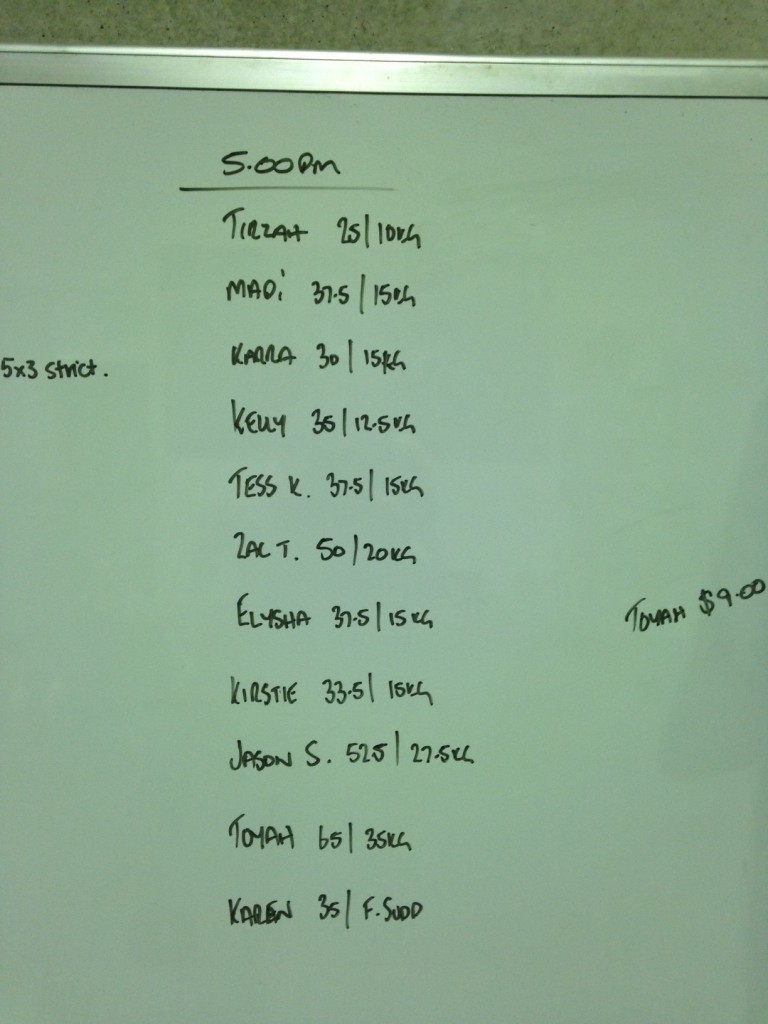 5.00pm
TIRZAH 25|10KG
MADi 37.5|15KG
5x3 strict.
KARRA 30|15KG
KELLY 35|12.5KG
TESS K. 37.5|15KG
ZAC T. 50|20KG
ELYSHA 37.5|15KG
TOYAH $9.00
KIRSTIE 33.5|15KG
JASON S. 52.5|27.5KG
TOYAH 65|35KG
KAREN 35|F.SUDD